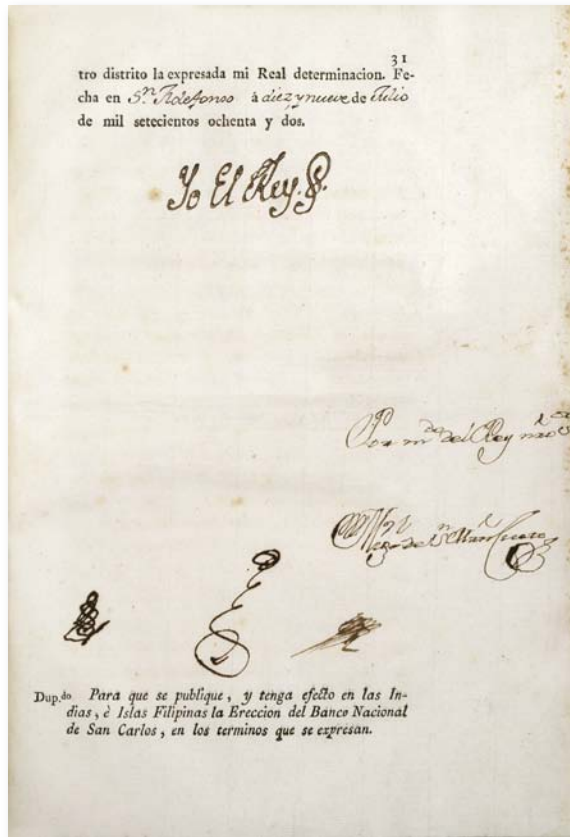 31
tro distrito la expresada mi Real determinacion. Fe-
cha en S.n Ildefonso à diez y nueve de Julio
de mil setecientos ochenta y dos.
Yo El Rey.
Por m.do del Rey nro
Dup.do Para que se publique, y tenga efecto en las In-
dias, è Islas Filipinas la Ereccion del Banco Nacional
de San Carlos, en los terminos que se expresan.